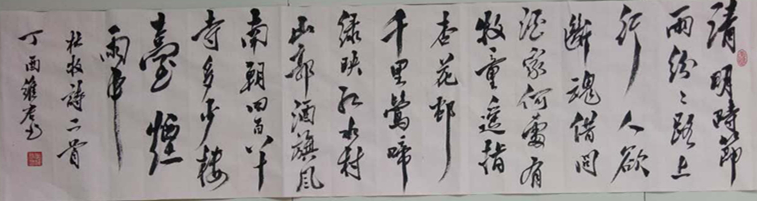 清明時節
雨紛々路上
行人欲
斷魂借問
酒家何處有
牧童遥指
杏花邨
千里鶯啼
绿映红水村
山郭酒旗风
南朝四百八十
寺多少楼
臺煙
雨中
杜牧詩二首
丁酉